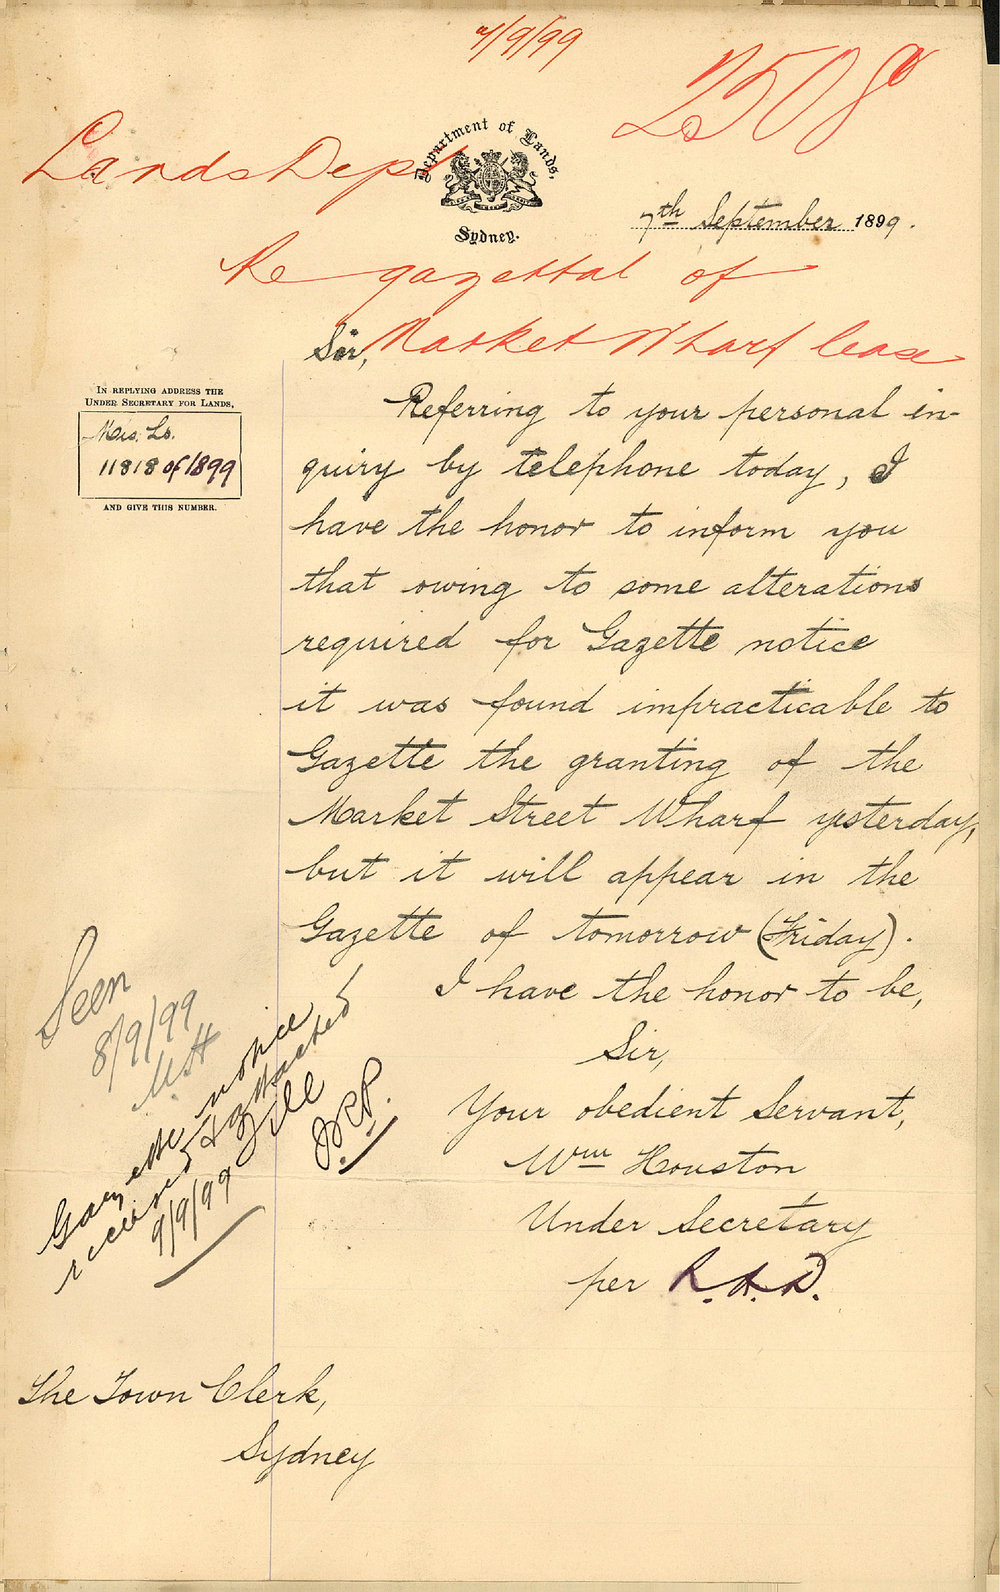 7/9/99
2508
Lands Dept
Department of Lands,
Sydney.
7th September 1899.
Re gazettal of
Market Wharf lease
Sir,
IN REPLYING ADDRESS THE
UNDER SECRETARY FOR LANDS,
Mis. Ls.
11818 of 1899
AND GIVE THIS NUMBER.
Referring to your personal in-
quiry by telephone today, I
have the honor to inform you
that owing to some alterations
required for Gazette notice
it was found impracticable to
Gazette the granting of the
Market Street Wharf yesterday,
but it will appear in the
Gazette of tomorrow (Friday).
I have the honor to be,
Sir,
Your obedient Servant,
Wm Houston
Under Secretary
per R.A.D.
Seen
8/9/99
Gazette notice
received & attached
9/9/99
The Town Clerk,
Sydney